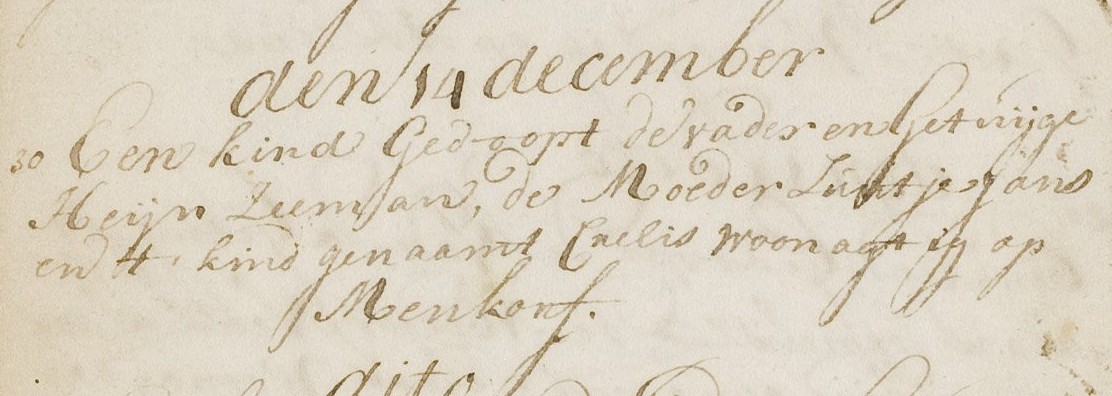 den 14 december
30 Een kind Gedoopt de vader en Getuijge
Heijn Zeeman, de Moeder Luitje Jans
en 't kind genaamt Crelis woonagtig op
Menkorf.
dito